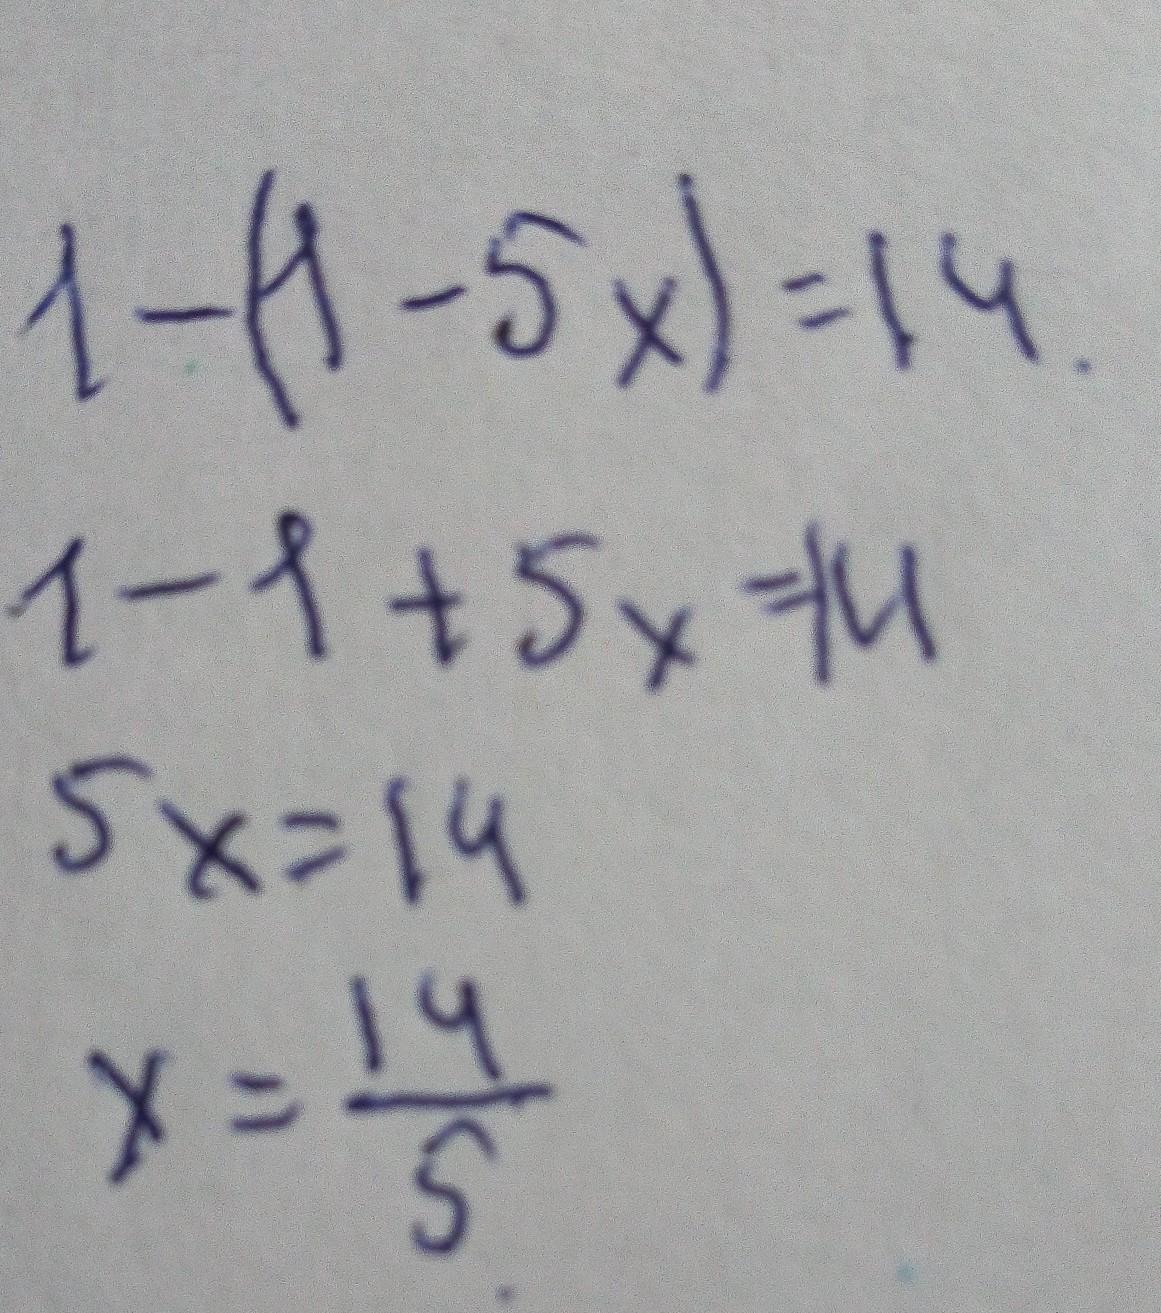 1-(1-5x)=14.
1-1+5x=14
5x=14
x=14/5.